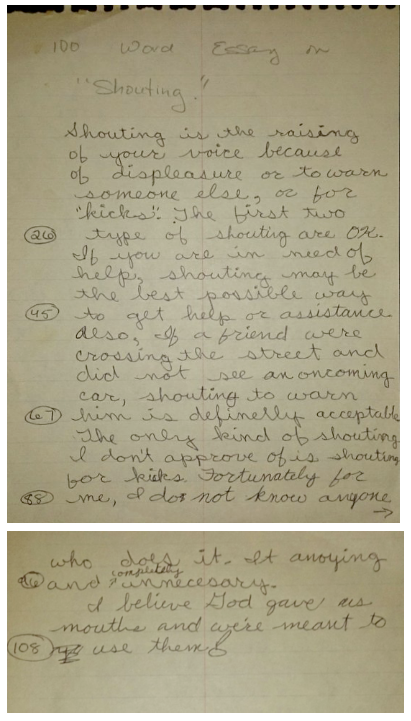 100 Word Essay on
"Shouting."
Shouting is the raising
of your voice because
of displeasure or to warn
someone else, or for
"kicks". The first two
26 type of shouting are OK.
If you are in need of
help, shouting may be
the best possible way
45 to get help or assistance
Also, If a friend were
crossing the street and
did not see an oncoming
car, shouting to warn
67 him is definelly acceptable
The only kind of shouting
I don't approve of is shouting
for kicks. Fortunately for
88 me, I do not know anyone
→
who does it. It anoying
96 and completely unnecesary.
I believe God gave us
mouths and we're meant to
108 use them